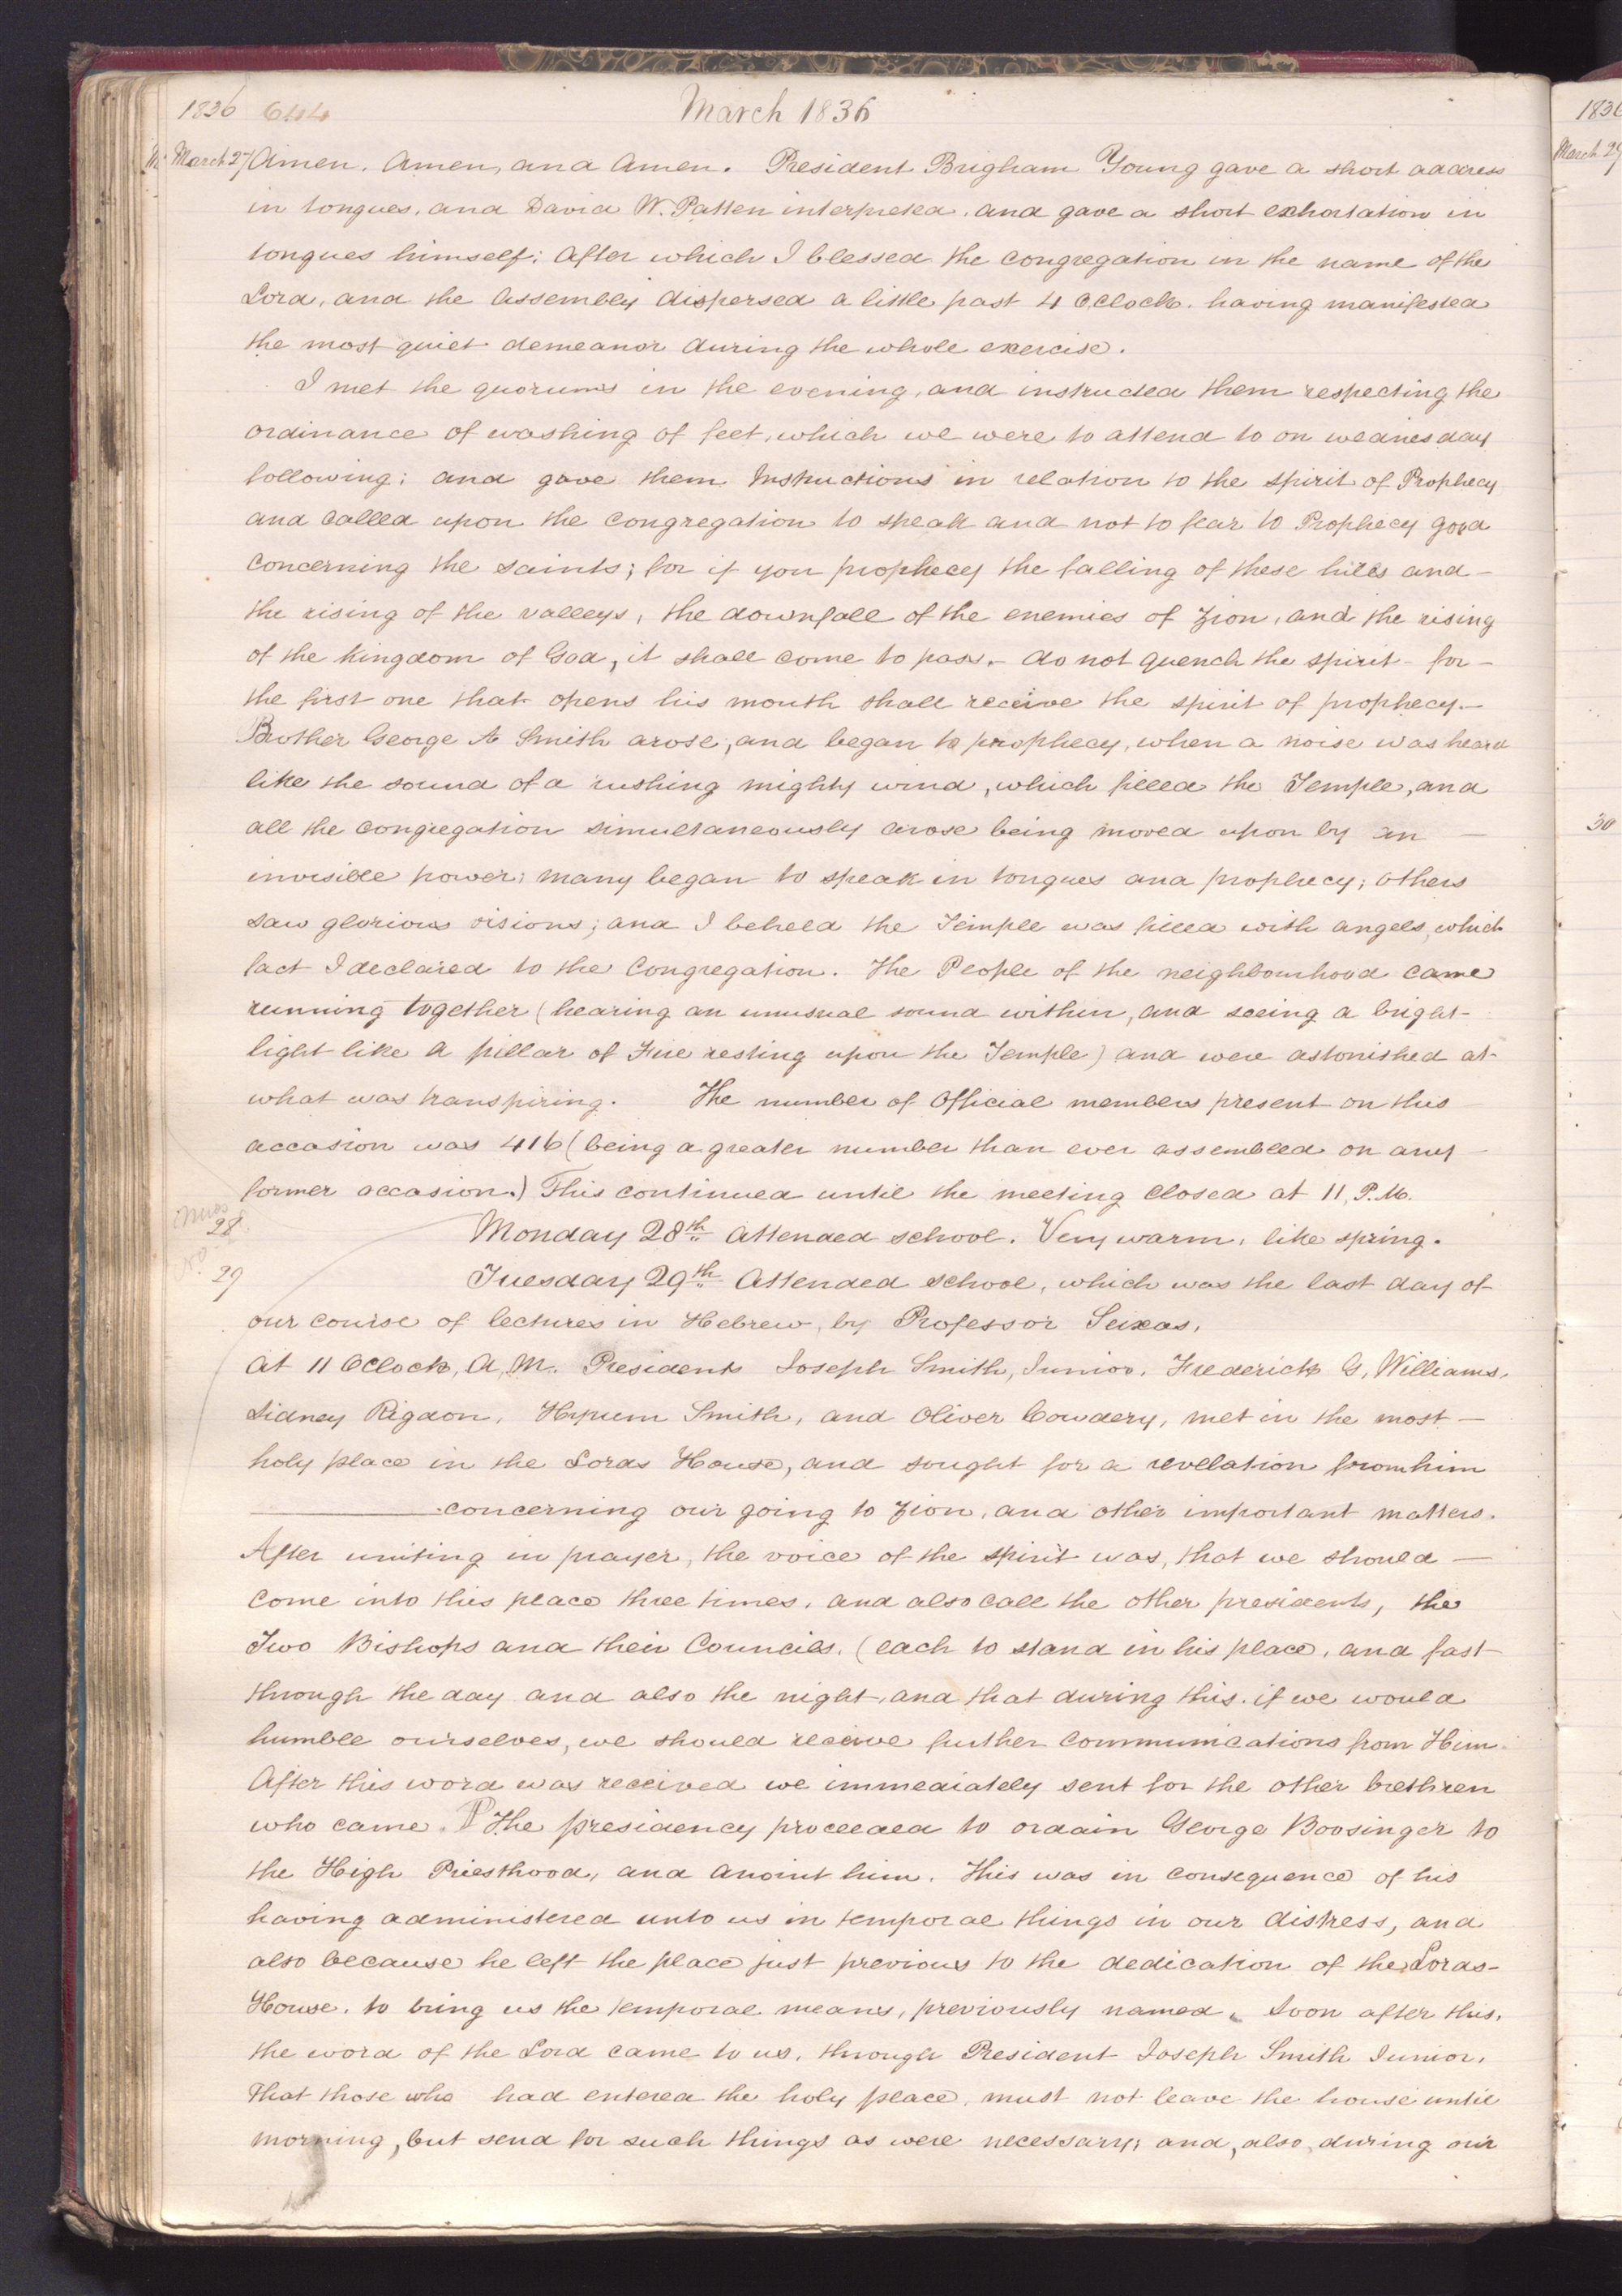 1836 644 March 1836
March 27 Amen, Amen, and Amen. President Brigham Young gave a short address
in tongues, and David W. Patten interpreted, and gave a short exhortation in
tongues himself; After which I blessed the congregation in the name of the
Lord, and the Assembly dispersed a little past 4 O,Clock. having manifested
the most quiet demeanor during the whole exercise.
I met the quorums in the evening, and instructed them respecting the
ordinance of washing of feet, which we were to attend to on wednesday
following; and gave them Instructions in relation to the spirit of Prophecy
and called upon the congregation to speak and not to fear to Prophecy good
concerning the saints; for if you prophecy the falling of these hills and –
the rising of the valleys, the downfall of the enemies of Zion, and the rising
of the Kingdom of God, it shall come to pass. – do not quench the spirit – for –
the first one that opens his mouth shall receive the spirit of prophecy. –
Brother George A Smith arose, and began to prophecy, when a noise was heard
like the sound of a rushing mighty wind, which filled the Temple, and
all the congregation simultaneously arose being moved upon by an –
invisible power; many began to speak in tongues and prophecy; others
saw glorious visions; and I beheld the Temple was filled with angels, which
fact I declared to the Congregation. The People of the neighbourhood came
running together (hearing an unusual sound within, and seeing a bright-
light like a pillar of Fire resting upon the Temple) and were astonished at-
what was transpiring. The number of Official members present on this
accasion was 416 (being a greater number than ever assembled on any –
former occasion.) This continued until the meeting closed at 11, P.M.
28 Monday 28th Attended school. Very warm, like spring.
29 Tuesday 29th Attended school, which was the last day of
our course of lectures in Hebrew, by Professor Seixas.
At 11 OClock, A, M. Presidents Joseph Smith, Junior, Frederick G, Williams,
Sidney Rigdon, Hyrum Smith, and Oliver Cowdery, met in the most –
holy place in the Lords House, and sought for a revelation from him
concerning our going to Zion, and other important matters.
After uniting in prayer, the voice of the spirit was, that we should –
come into this place three times, and also call the other presidents, the
Two Bishops and their Councils, (each to stand in his place, and fast –
through the day and also the night, and that during this. if we would
humble ourselves, we should receive further communications from Him.
After this word was received we immediately sent for the other brethren
who came. P The presidency proceeded to ordain George Boosinger to
the High Priesthood, and anoint him. This was in consequence of his
having administered unto us in temporal things in our distress, and
also because he left the place just previous to the dedication of the Lords-
House, to bring us the temporal means, previously named. Soon after this,
the word of the Lord came to us, through President Joseph Smith Junior,
That those who had entered the holy place, must not leave the house until
morning, but send for such things as were necessary; and, also, during our
1836
March 29
30